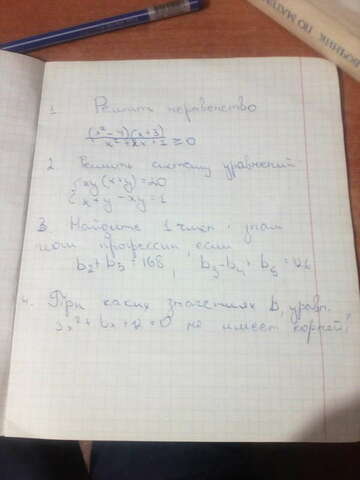 ВОЧНИК ПО МАТЕМ
1 Решить неравенство
(x²-4)(x+3)
x²+2x+1 ≥0
2 Решить систему уравнений
{xy(x+y)=20
x+y-xy=1
3. Найдите 1 член, знам
геом прогрессии, если
b₂+b₅=168,
4. При каких значениях b, уравн.
3x²+bx+12=0 не имеет корней,